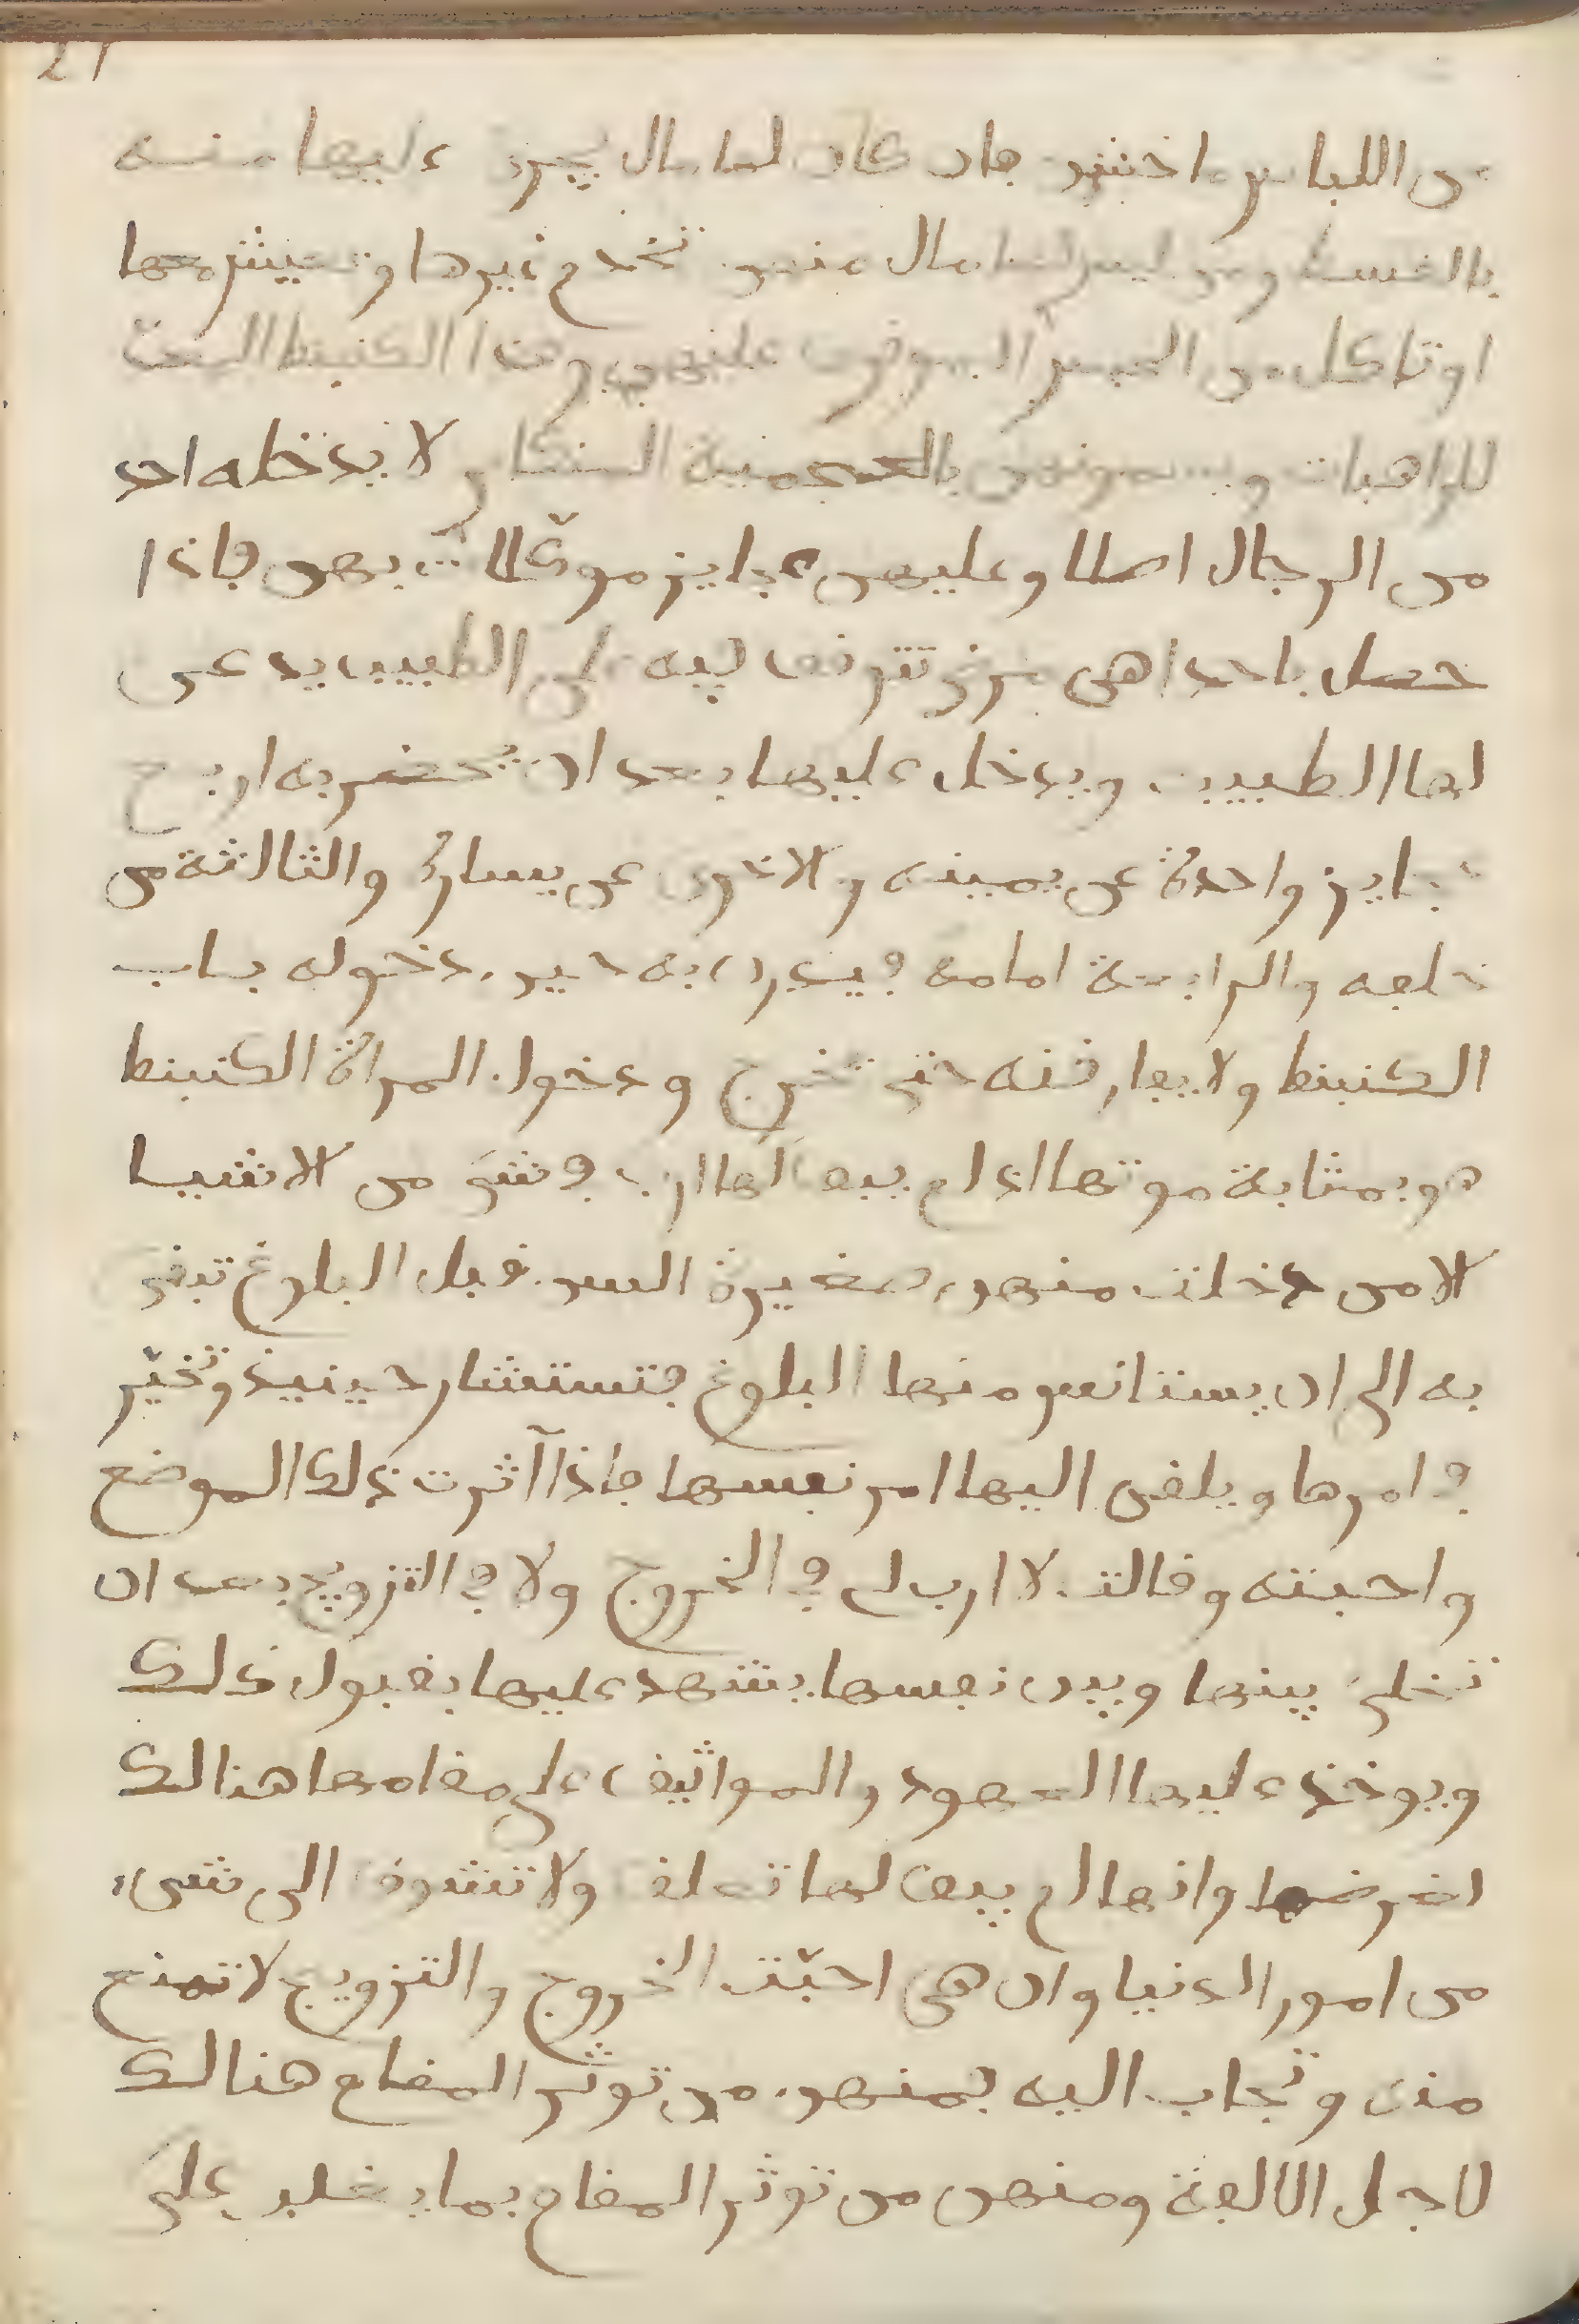 27
من اللباس ما خشن فان كان لها مال يجرى عليها منه
بالقسط ومن ليس لها مال منهن تخدم غيرها وتعيش معها
او تاكل من الحبس الموقوف عليهن وهذا الكنبنط البيت
للراهبات ويسمونهن بالعجمية لا يدخله احد
من الرجال اصلا وعليهن عجايز موكلات بهن فاذا
حصل باحداهن مرض تتوقف فيه على الطبيب يدعى
لها الطبيب ويدخل عليها بعد ان تحضر به اربع
عجايز واحدة عن يمينه والاخرى عن يساره والثالثة من
خلفه والرابعة امامه فيدرن به حين دخوله باب
الكنبنط ولا يفارقنه حتى تخرج ودخول المراة الكنبنط
هو بمثابة موتها اذ لم يبق لها ارب في شيء من الاشيا
الا من دخلت منهن صغيرة السن قبل البلوغ تبقى
به الى ان يستانس منها البلوغ فتستشار حينيذ وتخيّر
في امرها ويلقى اليها امر نفسها فاذا آثرت ذلك الموضع
واحبته وقالت لا ارب لي في الخروج ولا في التزويج بعد ان
تخلى بينها وبين نفسها يشهد عليها بقبول ذلك
ويوخذ عليها العهود والمواثيق على مقامها هنالك
وانها لم يبق لها تعلق ولا تشوف الى شيء
من امور الدنيا وان هي احبّت الخروج والتزويج لا تمنع
منه وتجاب اليه فمنهن من توثر المقام هنالك
لاجل الالفة ومنهن من توثر المقام بما يغلب على